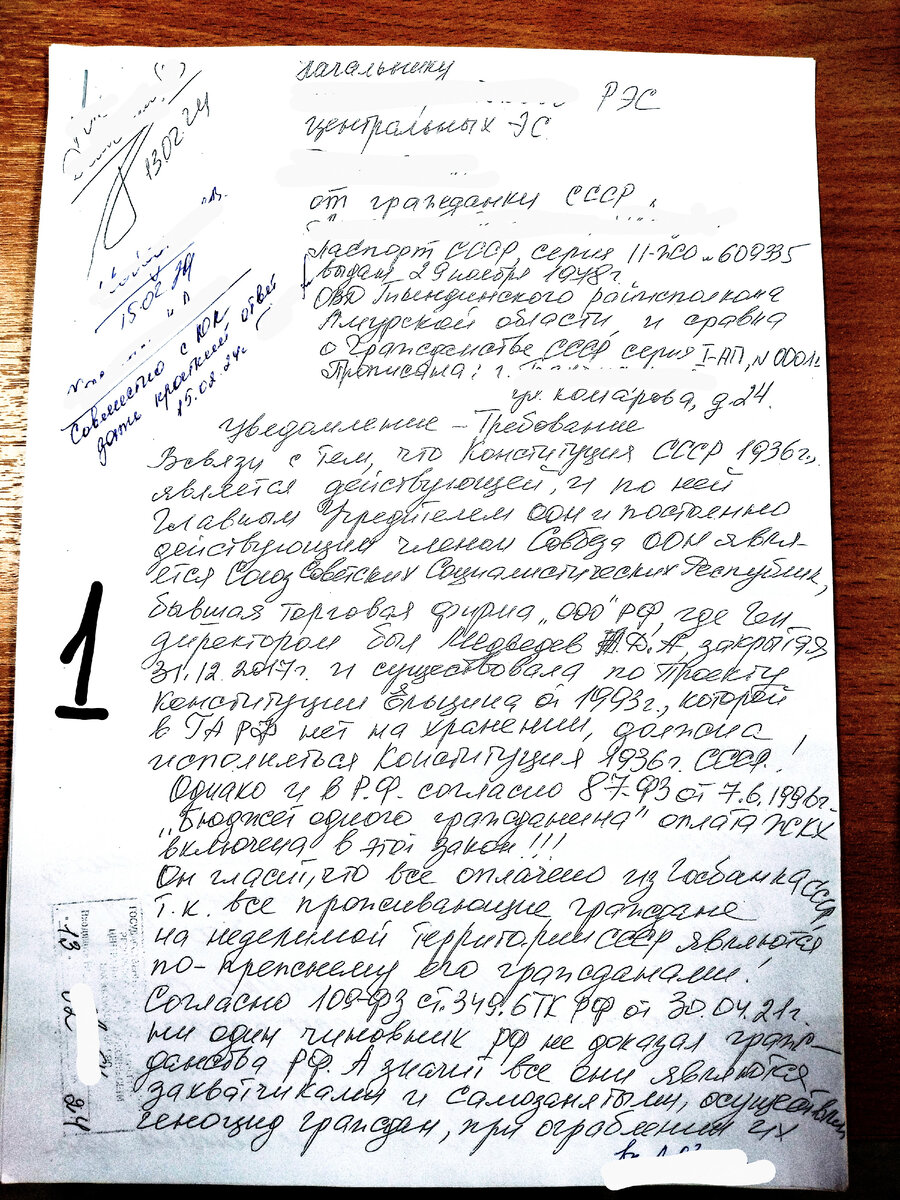 1
13.02.24
15.02.24
Совместно с ЮК
дать краткий ответ
15.02.24г
начальнику
РЭС
центральных ЭС
от гражданки СССР,
Паспорт СССР, серия II-ЖО № 609335
выдан 29 ноября 1978г.
ОВД Тындинского райисполкома
Амурской области, и справка
о Гражданстве СССР, серия I-АП, N 0001г
Прописана: г.
ул. Комарова, д. 24.
Уведомление - Требование
В связи с тем, что Конституция СССР 1936г.,
является действующей, и по ней
Главным Учредителем ООН и постоянно
действующим членом Совбеза ООН явля-
ется Союз Советских Социалистических Республик,
бывшая торговая фирма „ООО" РФ, где Ген
директором был Медведев Д.А, закрытая
31.12.2017г. и существовала по Проекту
Конституции Ельцина от 1993г., которой
в ГА РФ нет на хранении, должна
исполняться Конституция 1936г. СССР!
Однако и в Р.Ф. согласно 87.ФЗ от 7.6.1996г.
„Бюджет одного гражданина" оплата ЖКХ
включена в этот закон!!!
Он гласит, что все оплачено из Госбанка СССР,
т.к. все проживающие граждане
на неделимой территории СССР являются
по-прежнему его гражданами!
Согласно 109-ФЗ ст.349.6ТК РФ от 30.04.21г.
ни один чиновник РФ не доказал граж-
данства РФ. А значит все они являются
захватчиками и самозанятыми, осуществляя
геноцид граждан, при ограблении их
1
13. 02 24